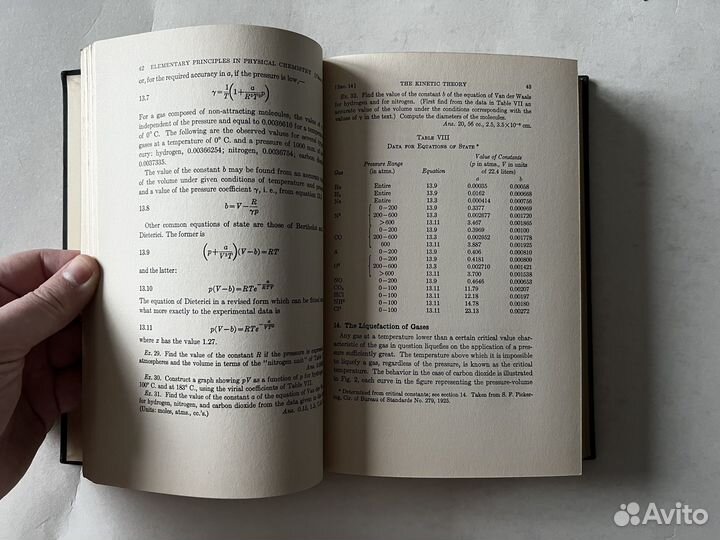 42 ELEMENTARY PRINCIPLES IN PHYSICAL CHEMISTRY
or, for the required accuracy in a, if the pressure is low,—
13.7 γ = 1/T (1 + a/R²T²p)
For a gas composed of non-attracting molecules, the value of
independent of the pressure and equal to 0.0036610 for a temperature
of 0° C. The following are the observed values for several
gases at a temperature of 0° C and a pressure of 1000 mm. of
cury: hydrogen, 0.00366254; nitrogen, 0.0036754; carbon
0.0037335.
The value of the constant b may be found from an accurate
of the volume under given conditions of temperature and pressure
and a value of the pressure coefficient γ, i. e., from equation
13.8 b = V − R/γp
Other common equations of state are those of Berthelot
Dieterici. The former is
13.9 (p + a/V²T)(V−b) = RT
and the latter:
13.10 p(V−b) = RTe^−a/RTV
The equation of Dieterici in a revised form which can be fitted
what more exactly to the experimental data is
13.11 p(V−b) = RTe
where z has the value 1.27.
Ex. 29. Find the value of the constant R if the pressure is
atmospheres and the volume in terms of the "nitrogen unit" of Table
Ex. 30. Construct a graph showing pV as a function of p for hydrogen
100° C. and at 183° C., using the virial coefficients of Table VII.
Ex. 31. Find the value of the constant a of the equation of Van der
for hydrogen, nitrogen, and carbon dioxide from the data given in
(Units: moles, atms., cc.'s.) Ans. 0.15,
[Sec. 14] THE KINETIC THEORY 43
Ex. 32. Find the value of the constant b of the equation of Van der Waals
for hydrogen and for nitrogen. (First find from the data in Table VII an
accurate value of the volume under the conditions corresponding with the
values of γ in the text.) Compute the diameters of the molecules.
Ans. 20, 56 cc., 2.5, 3.5×10⁻⁸ cm.
Table VIII
Data for Equations of State *
Gas Pressure Range (in atms.) Equation Value of Constants (p in atms., V in units of 22.4 liters) a b
He Entire 13.9 0.00035 0.00058
H₂ Entire 13.9 0.0162 0.000668
Ne Entire 13.3 0.000414 0.000756
N² 0–200 13.9 0.3377 0.000969
200–600 13.3 0.002677 0.001720
>600 13.11 3.467 0.001389
CO 0–200 13.9 0.3969 0.00100
200–600 13.3 0.002952 0.001778
600 13.11 3.887 0.001925
A 0–200 13.9 0.406 0.000810
O² 0–200 13.9 0.4181 0.00080
200–600 13.3 0.002710 0.001421
>600 13.11 3.700 0.001538
NO 0–200 13.9 0.4646 0.000653
CO₂ 0–100 13.11 11.79 0.00207
HCl 0–100 13.11 12.18 0.00197
NH³ 0–100 13.11 14.78 0.00180
Cl² 0–100 13.11 23.13 0.00272
14. The Liquefaction of Gases
Any gas at a temperature lower than a certain critical value char-
acteristic of the gas in question liquefies on the application of a pres-
sure sufficiently great. The temperature above which it is impossible
to liquefy a gas, regardless of the pressure, is known as the critical
temperature. The behavior in the case of carbon dioxide is illustrated
in Fig. 2, each curve in the figure representing the pressure-volume
* Determined from critical constants; see section 14. Taken from S. F. Picker-
ing, Cir. of Bureau of Standards No. 279, 1925.
Avito